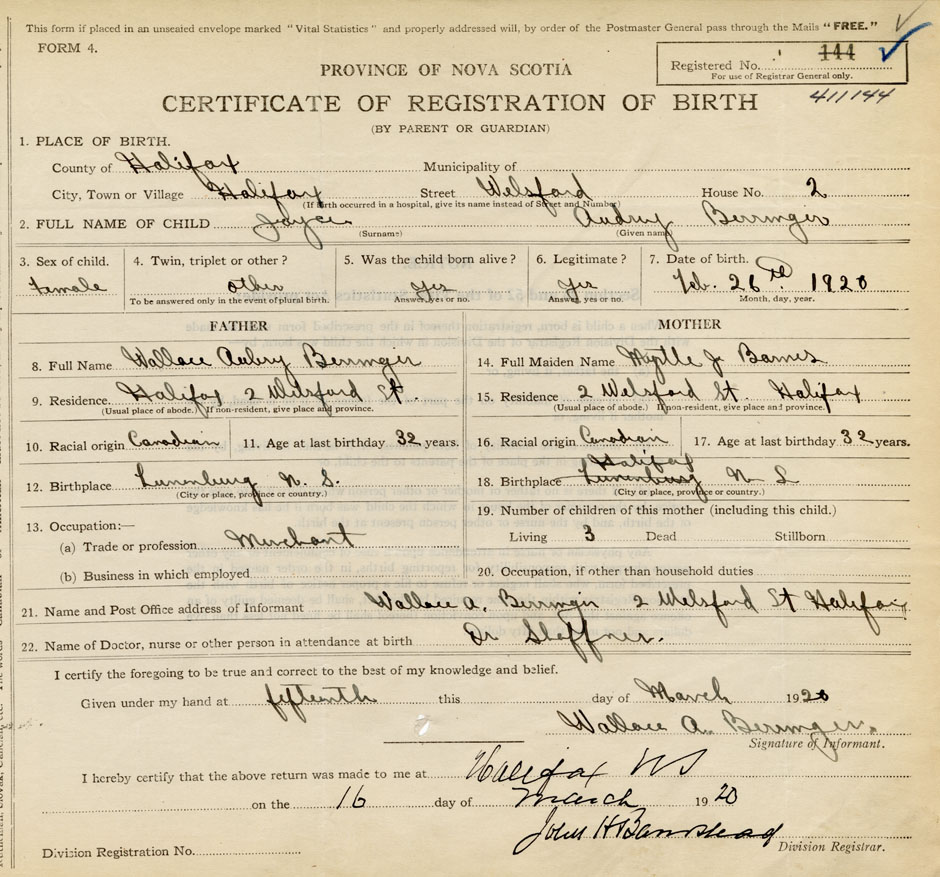 This form if placed in an unsealed envelope marked "Vital Statistics" and properly addressed will, by order of the Postmaster General pass through the Mails "FREE."
FORM 4.
Registered No. 144
For use of Registrar General only.
411144
PROVINCE OF NOVA SCOTIA
CERTIFICATE OF REGISTRATION OF BIRTH
(BY PARENT OR GUARDIAN)
1. PLACE OF BIRTH.
County of Halifax Municipality of
City, Town or Village Halifax Street Welsford House No. 2
(If birth occurred in a hospital, give its name instead of Street and Number)
2. FULL NAME OF CHILD Joyce Audry Berringer
(Surname) (Given name)
3. Sex of child. 4. Twin, triplet or other? 5. Was the child born alive? 6. Legitimate? 7. Date of birth.
female other yes yes Feb. 26th 1920
To be answered only in the event of plural birth. Answer, yes or no. Answer, yes or no. Month, day, year.
FATHER MOTHER
8. Full Name Wallace Aubry Berringer 14. Full Maiden Name Myrtle J Barnes
9. Residence. Halifax 2 Welsford St. 15. Residence 2 Welsford St. Halifax
(Usual place of abode.) If non-resident, give place and province. (Usual place of abode.) If non-resident, give place and province.
10. Racial origin Canadian 11. Age at last birthday 32 years. 16. Racial origin Canadian 17. Age at last birthday 32 years.
Halifax
12. Birthplace Lunenburg N. S. 18. Birthplace Lunenburg N S
(City or place, province or country.) (City or place, province or country.)
19. Number of children of this mother (including this child.)
13. Occupation:—
(a) Trade or profession Merchant Living 3 Dead Stillborn
(b) Business in which employed 20. Occupation, if other than household duties
21. Name and Post Office address of Informant Wallace A. Berringer 2 Welsford St Halifax
22. Name of Doctor, nurse or other person in attendance at birth Dr
I certify the foregoing to be true and correct to the best of my knowledge and belief.
Given under my hand at fifteenth this day of March 1920
Wallace A. Berringer.
Signature of Informant.
I hereby certify that the above return was made to me at Halifax NS
on the 16 day of March 1920
John H Barnstead
Division Registration No. Division Registrar.